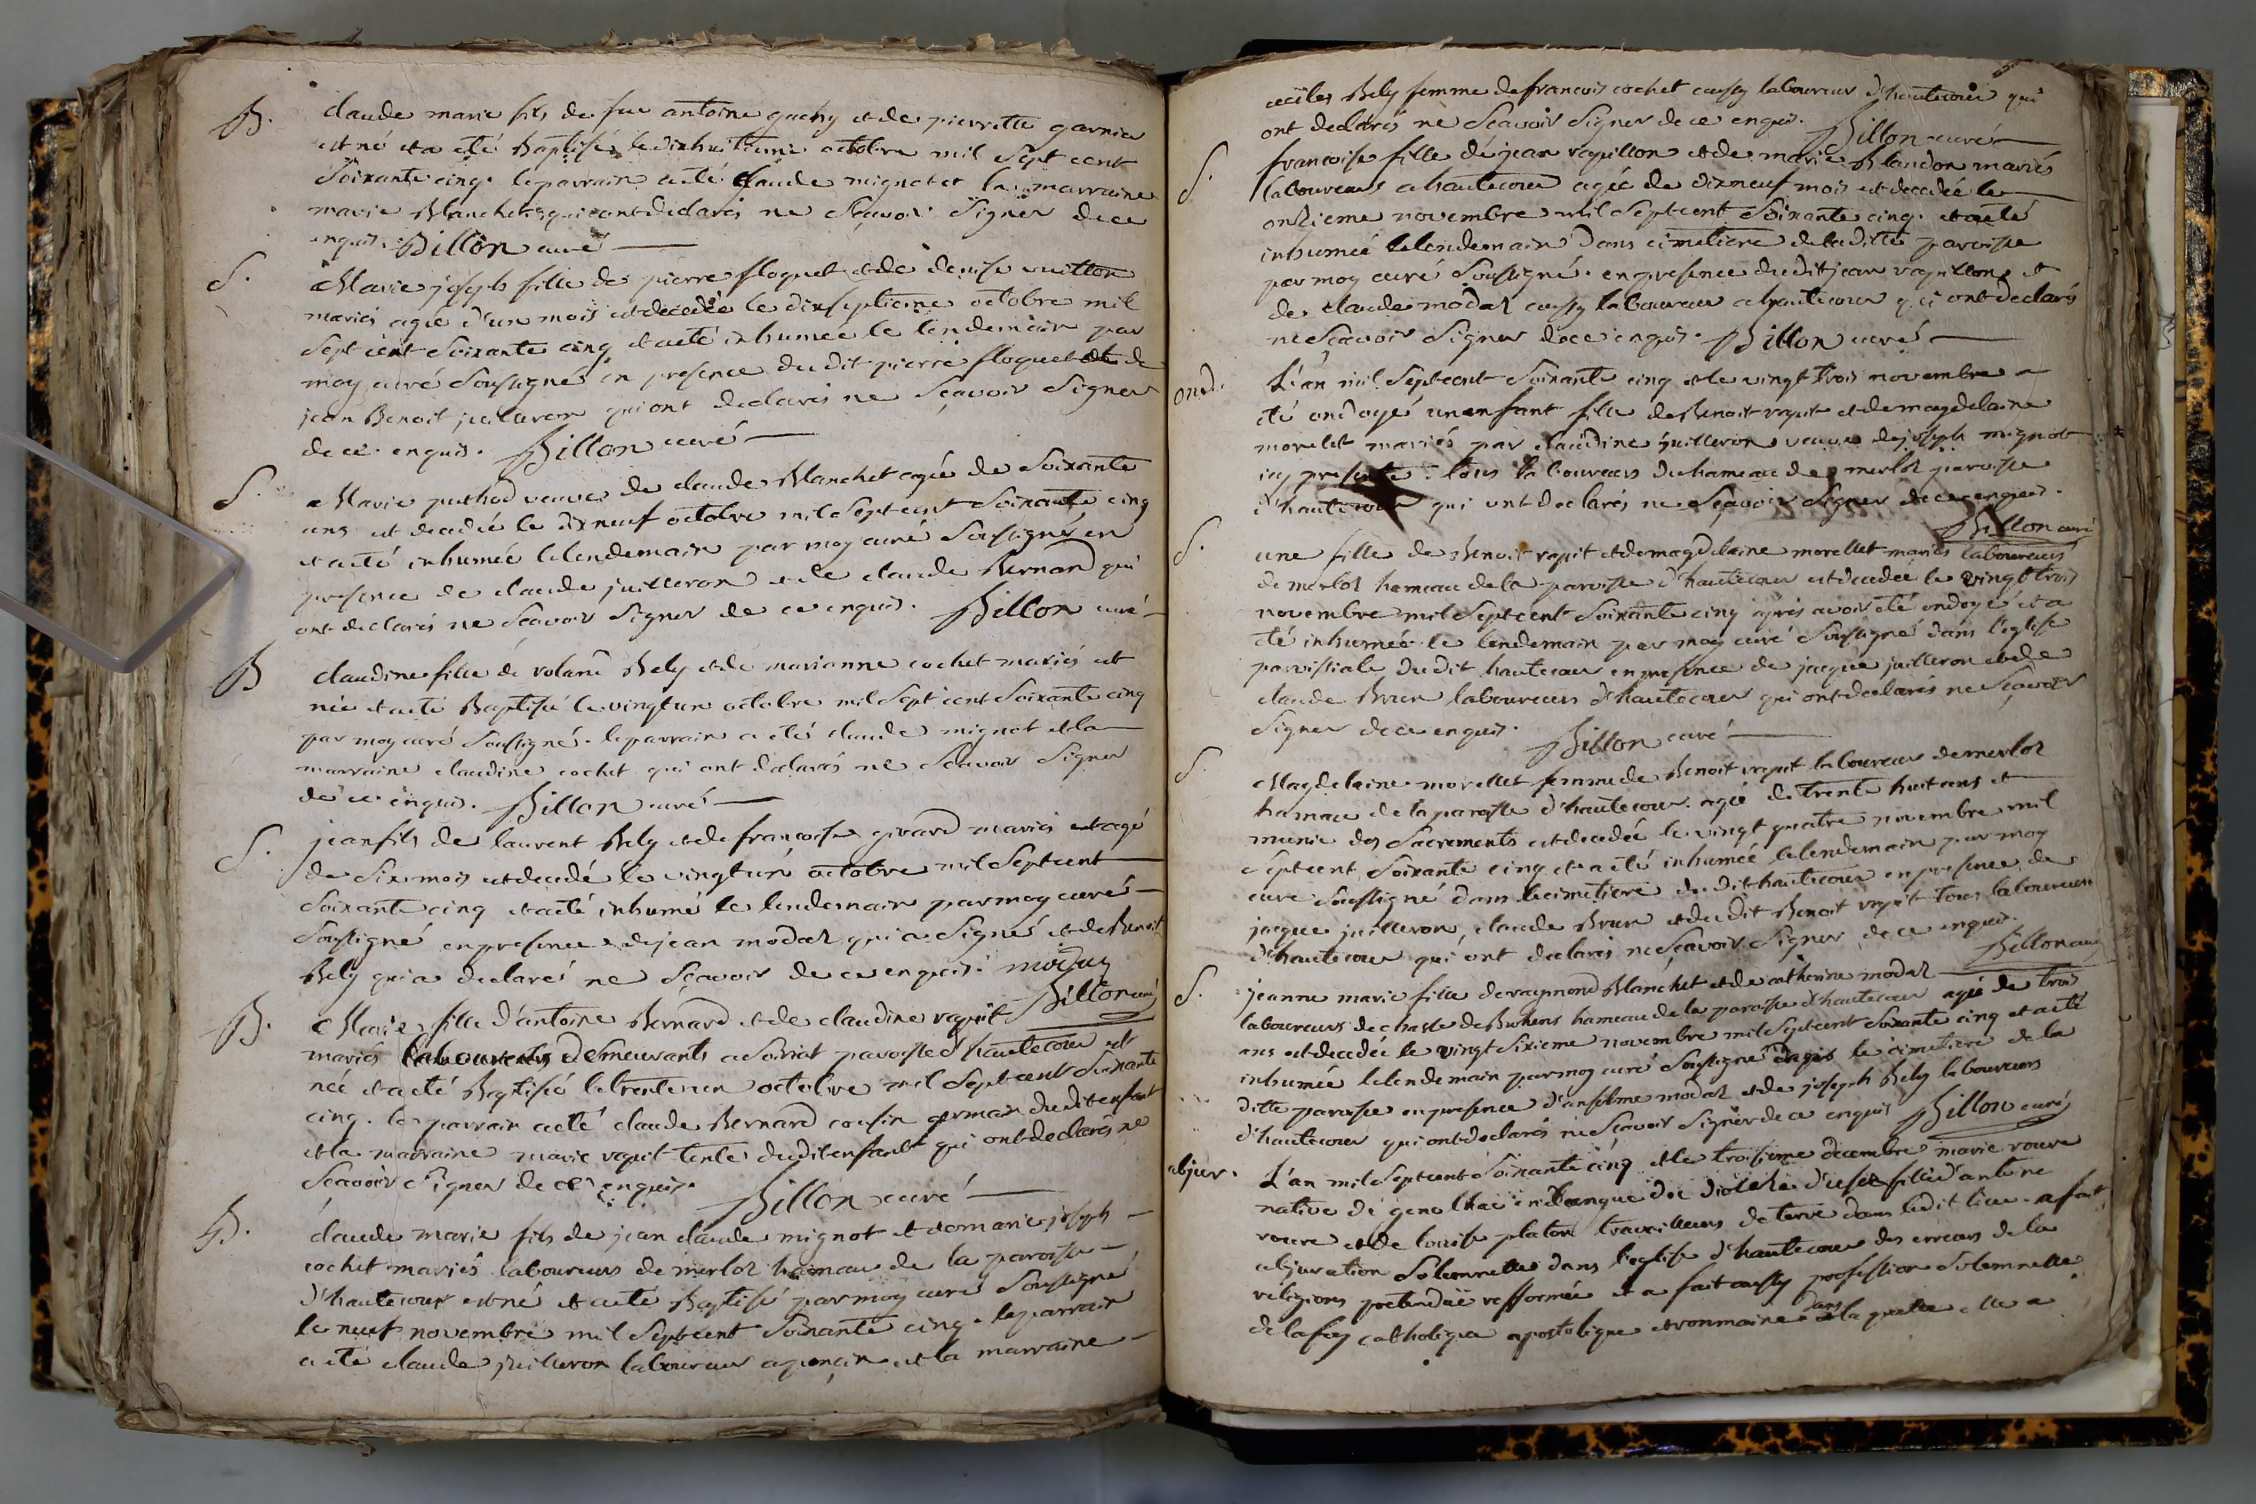 B. claude marie fils de fue antoine guchy et de pierrette garnier
est né et a eté Baptisé le dixhuitieme octobre mil sept cent
Soixante cinq. le parrain a eté claude mignot et la marraine
marie Blanchet qui ont declarés ne Sçavoir Signer de ce
enquis. Billon curé
S. Marie joseph fille de pierre floquet et de denise vuillon
mariés agée d'un mois est decedée le dixseptieme octobre mil
Sept cent Soixante cinq et a eté inhumée le lendemain par
moy curé Soussigné en presence du dit pierre floquet et de
jean Benoit juilleron qui ont declarés ne Sçavoir Signer
de ce enquis. Billon curé
S. Marie puthod veuve de claude Blanchet agée de Soixante
ans est decedée le dix neuf octobre mil Sept cent Soixante cinq
et a eté inhumée le lendemain par moy curé Soussigné en
presence de claude juilleron et de claude Bernard qui
ont declarés ne Sçavoir Signer de ce enquis. Billon curé
B claudine fille de roland Bely et de marianne cochet mariés est
née et a eté Baptisée le vingt un octobre mil Sept cent Soixante cinq
par moy curé Soussigné. le parrain a eté claude mignot et la
marraine claudine cochet qui ont declarés ne Scavoir Signer
de ce enquis. Billon curé
S. jean fils de laurent Bely et de francoise girard mariés agé
de Six mois est decedé le vingt un octobre mil Sept cent
Soixante cinq et a eté inhumé le lendemain par moy curé
Soussigné en presence de jean modas qui a Signé et de Benoit
Bely qui a declaré ne Scavoir de ce enquis. modas
Billon curé
B. Marie fille d'antoine Bernard et de claudine vapit
mariés laboureurs demeurants a Soiriat paroisse d'hautecour est
née et a eté Baptisée le trente un octobre mil Sept cent Soixante
cinq. le parrain a eté claude Bernard cousin germain du dit enfant
et la marraine marie vapit tente du dit enfant qui ont declarés ne
Scavoir Signer de ce enquis.
Billon curé
B. claude marie fils de jean claude mignot et de marie joseph
cochet mariés laboureurs de merloz hameau de la paroisse
d'hautecour est né et a eté Baptisé par moy curé Soussigné
le neuf novembre mil Sept cent Soixante cinq. le parrain
a eté claude juilleron laboureur a et la marraine
Bely femme de francois cochet aussy laboureur d'hautecour qui
ont declarés ne Scavoir Signer de ce enquis.
Billon curé
S. francoise fille de jean vapillon et de marie Blandon mariés
laboureurs a hautecour agée de dixneuf mois est decedée le
onzieme novembre mil Sept cent Soixante cinq. et a eté
inhumée le lendemain dans cimetiere de la ditte paroisse
par moy curé Soussigné. en presence du dit jean vapillon et
de claude modas aussy laboureur a hautecour qui ont declarés
ne Scavoir Signer de ce enquis. Billon curé
ond. L'an mil Sept cent Soixante cinq et le vingt trois novembre a
eté ondoyé un enfant fille de Benoit vapit et de magdelaine
morelet mariés par claudine juilleron veuve de joseph mignot
icy presente. tous laboureurs du hameau de merloz paroisse
d'hautecour qui ont declarés ne Sçavoir Signer de ce enquis.
Billon curé
S. une fille de Benoit vapit et de magdelaine morellet mariés laboureurs
de merloz hameau de la paroisse d'hautecour est decedée le vingt trois
novembre mil Sept cent Soixante cinq après avoir eté ondoyé et a
eté inhumée le lendemain par moy curé Soussigné dans l'eglise
paroissiale du dit hautecour en presence de jaque juilleron et de
claude Brun laboureurs d'hautecour qui ont declarés ne Sçavoir
Signer de ce enquis. Billon curé
S. Magdelaine morellet femme de Benoit vapit laboureur de merloz
hameau de la paroisse d'hautecour. agée de trente huit ans et
munie des Sacrements est decedée le vingt quatre novembre mil
Sept cent Soixante cinq et a eté inhumée le lendemain par moy
curé Soussigné dans le cimetiere du dit hautecour en presence de
jaque juilleron, claude Brun et du dit Benoit vapit tous laboureurs
d'hautecour qui ont declarés ne Scavoir Signer de ce enquis.
Billon curé
S. jeanne marie fille de raymond Blanchet et de catherine modas
laboureurs de hameau de la paroisse d'hautecour agée de trois
ans est decedée le vingt Sixieme novembre mil Sept cent Soixante cinq et a eté
inhumée le lendemain par moy curé Soussigné dans le cimetiere de la
ditte paroisse en presence d'anselme modas et de joseph Bely laboureurs
d'hautecour qui ont declarés ne Scavoir Signer de ce enquis Billon curé
abjur. L'an mil Sept cent Soixante cinq et le troisieme decembre marie roure
native de genolhac en diocese d'usez fille d'antoine
roure et de louise platon travailleurs de terre dans ledit lieu. a fait
abjuration Solemnelle dans l'eglise d'hautecour des erreurs de la
religions pretenduë refformée et a fait aussy profession Solemnelle
de la foy catholique apostolique et rommaine dans la quelle elle a